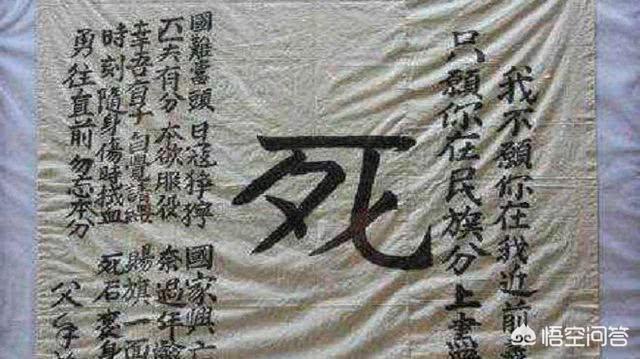 我不願你在我近前
只願你在民族分上
死
國難當頭 日寇猙獰 國家興亡
匹夫有分 本欲服役 奈過年齡
幸吾有子 自覺請纓 賜旗一面
時刻隨身 傷時拭血 死后裹身
勇往直前 勿忘本分 父手
悟空问答